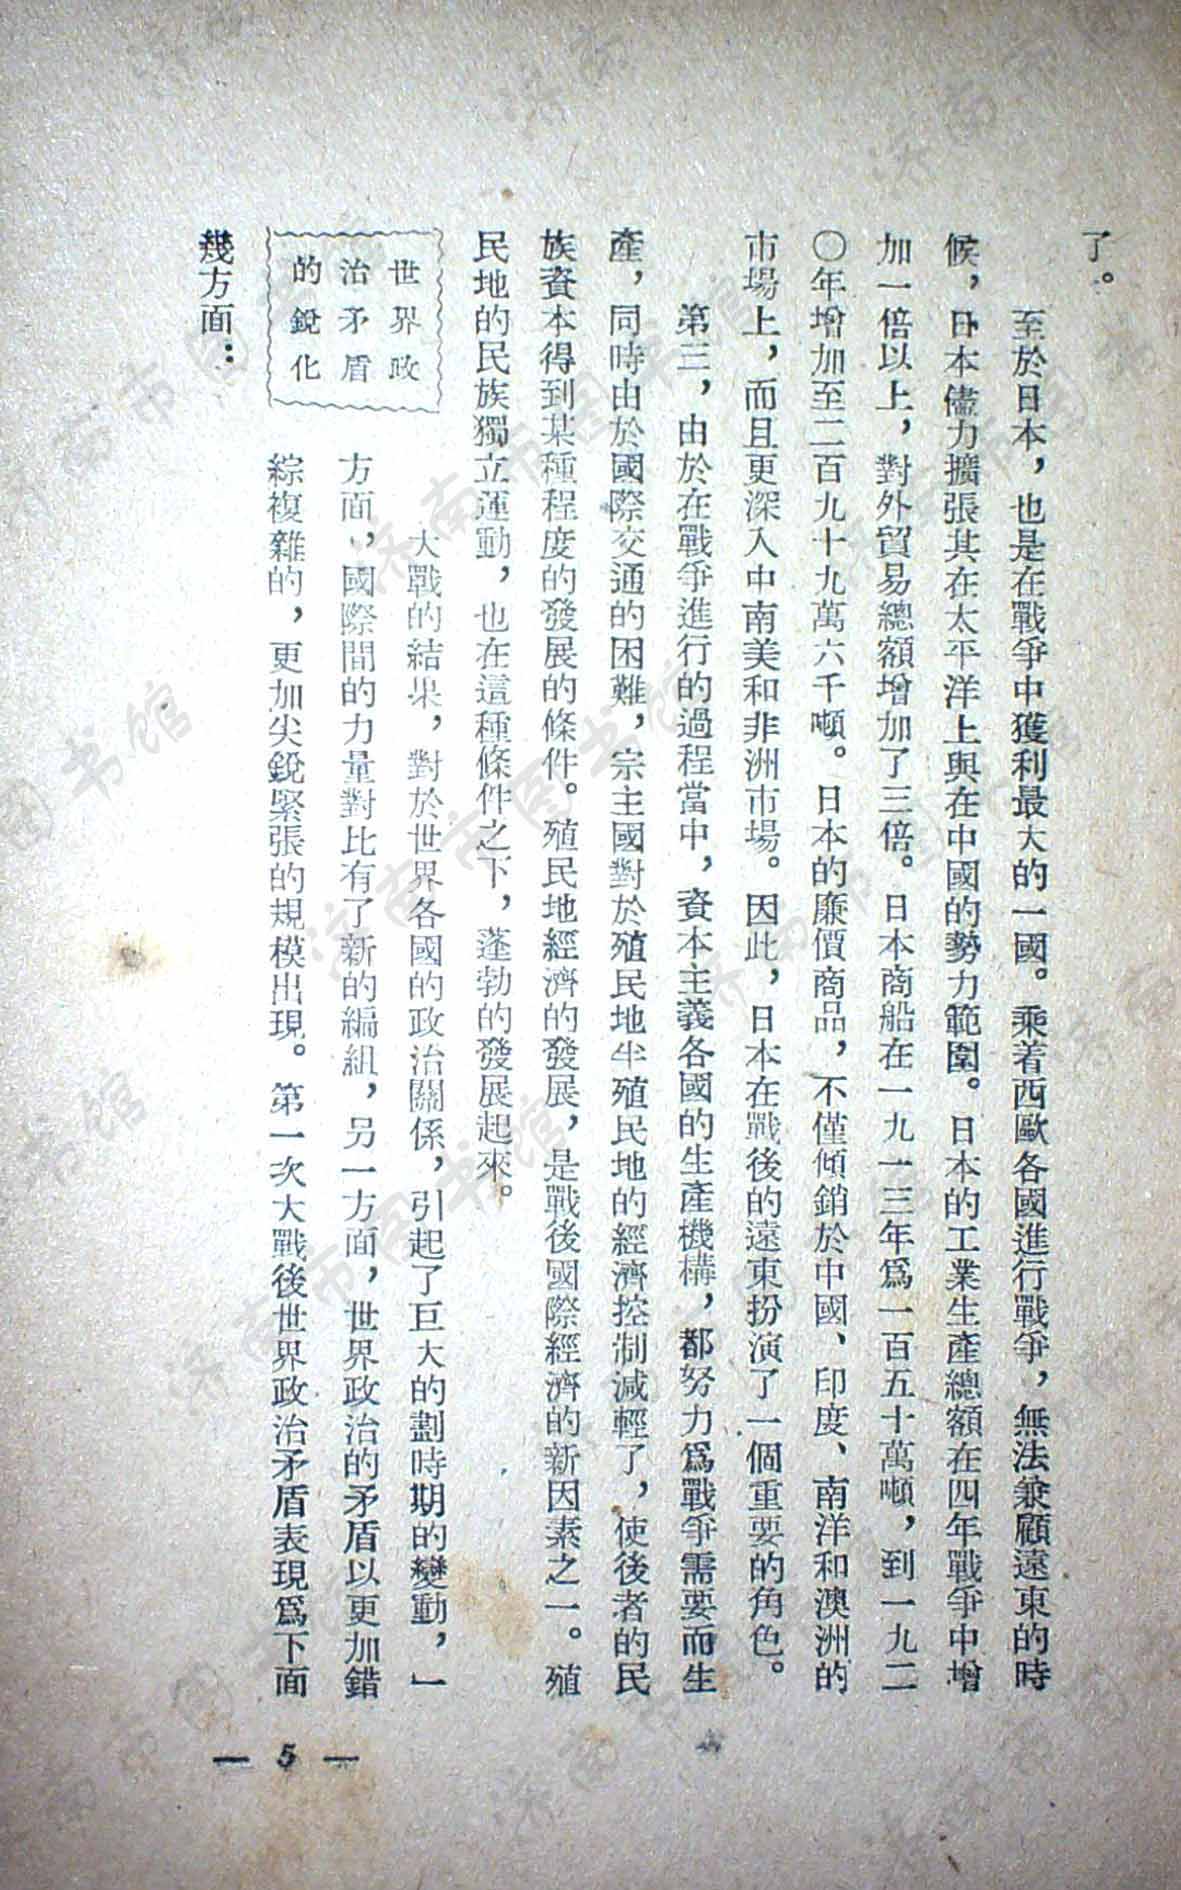 了。
至於日本，也是在戰爭中獲利最大的一國。乘着西歐各國進行戰爭，無法兼顧遠東的時
候，日本儘力擴張其在太平洋上與在中國的勢力範圍。日本的工業生產總額在四年戰爭中增
加一倍以上，對外貿易總額增加了三倍。日本商船在一九一三年爲一百五十萬噸，到一九二
〇年增加至二百九十九萬六千噸。日本的廉價商品，不僅傾銷於中國、印度、南洋和澳洲的
市場上，而且更深入中南美和非洲市場。因此，日本在戰後的遠東扮演了一個重要的角色。
第三，由於在戰爭進行的過程當中，資本主義各國的生產機構，都努力爲戰爭需要而生
產，同時由於國際交通的困難，宗主國對於殖民地半殖民地的經濟控制減輕了，使後者的民
族資本得到某種程度的發展的條件。殖民地經濟的發展，是戰後國際經濟的新因素之一。殖
民地的民族獨立運動，也在這種條件之下，蓬勃的發展起來。
世界政
治矛盾
的銳化
大戰的結果，對於世界各國的政治關係，引起了巨大的劃時期的變動，一
方面，國際間的力量對比有了新的編組，另一方面，世界政治的矛盾以更加錯
綜複雜的，更加尖銳緊張的規模出現。第一次大戰後世界政治矛盾表現爲下面
幾方面：
— 5 —
济南市图书馆
济南市图书馆
济南市图书馆
济南市图书馆